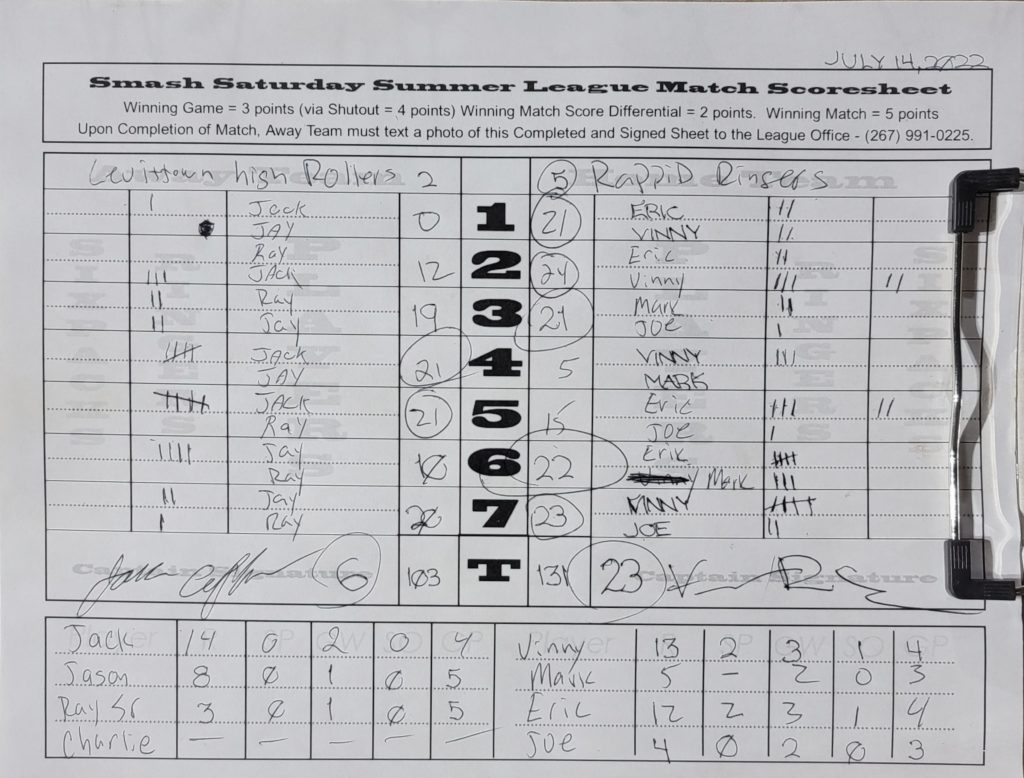 JULY 14, 2022
Smash Saturday Summer League Match Scoresheet
Winning Game = 3 points (via Shutout = 4 points) Winning Match Score Differential = 2 points. Winning Match = 5 points
Upon Completion of Match, Away Team must text a photo of this Completed and Signed Sheet to the League Office - (267) 991-0225.
Levittown high Rollers 2 5 RAPPID Ringers
Jack 0 1 21 ERIC
JAY VINNY
Ray 2 Eric
JACK 12 24 Vinny
Ray 3 Mark
Jay 19 21 JOE
JACK 4 VINNY
JAY 21 5 MARK
JACK 5 Eric
Ray 21 15 JOE
Jay 6 Erik
Ray 10 22 Mark
Jay 7 VINNY
Ray 23 JOE
Captain Signature 6 103 T 131 23 Captain Signature
Player GP GW SO CP Player GP GW SO CP
Jack 14 0 2 0 4 Vinny 13 2 3 1 4
Jason 8 0 1 0 5 Mark 5 - 2 0 3
Ray Sr 3 0 1 0 5 Eric 12 2 3 1 4
Charlie — — — — — Joe 4 0 2 0 3